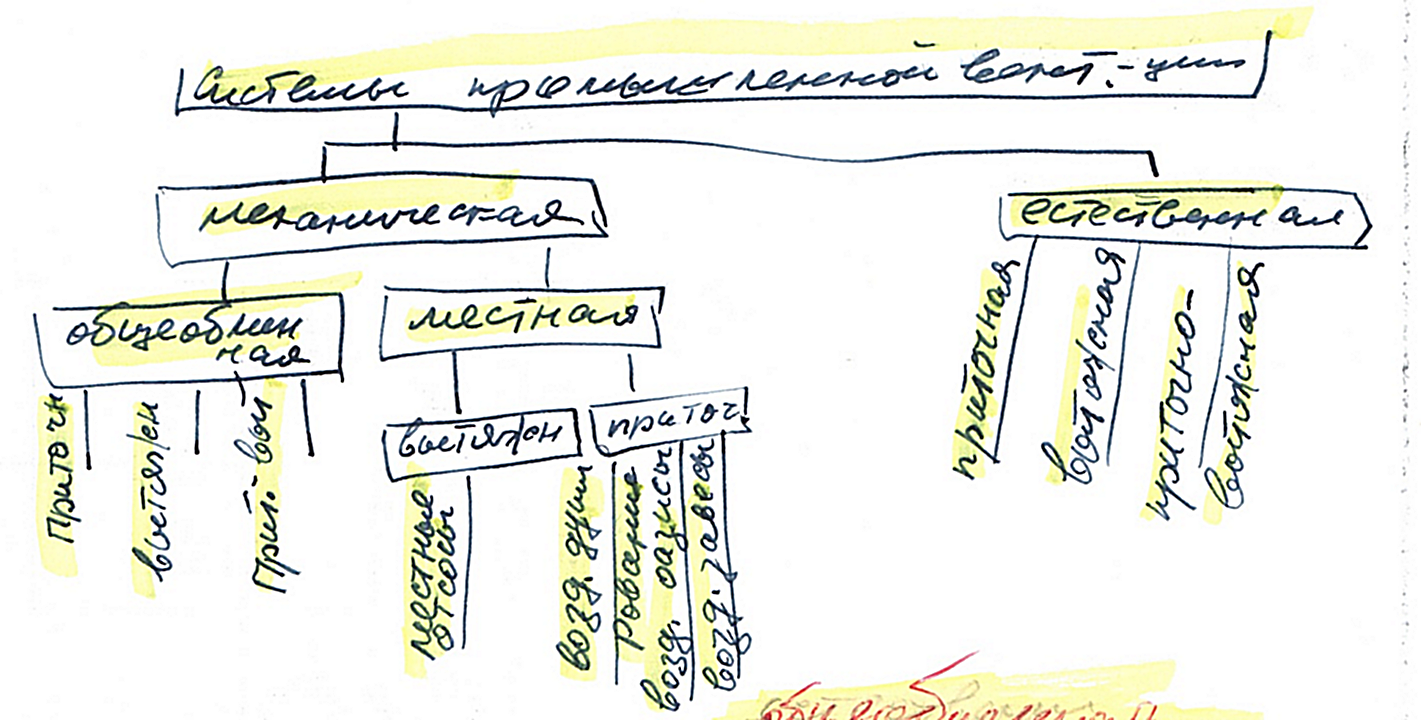 Системы промышленной вент.-ции
механическая
естественная
общеобмен
ная
местная
приточная
вытяжная
приточно-
вытяжная
вытяжн
приточ.
Приточн
вытяжн
Прит.-выт
местные
отсосы
возд. души
возд. оазисы
возд. завесы